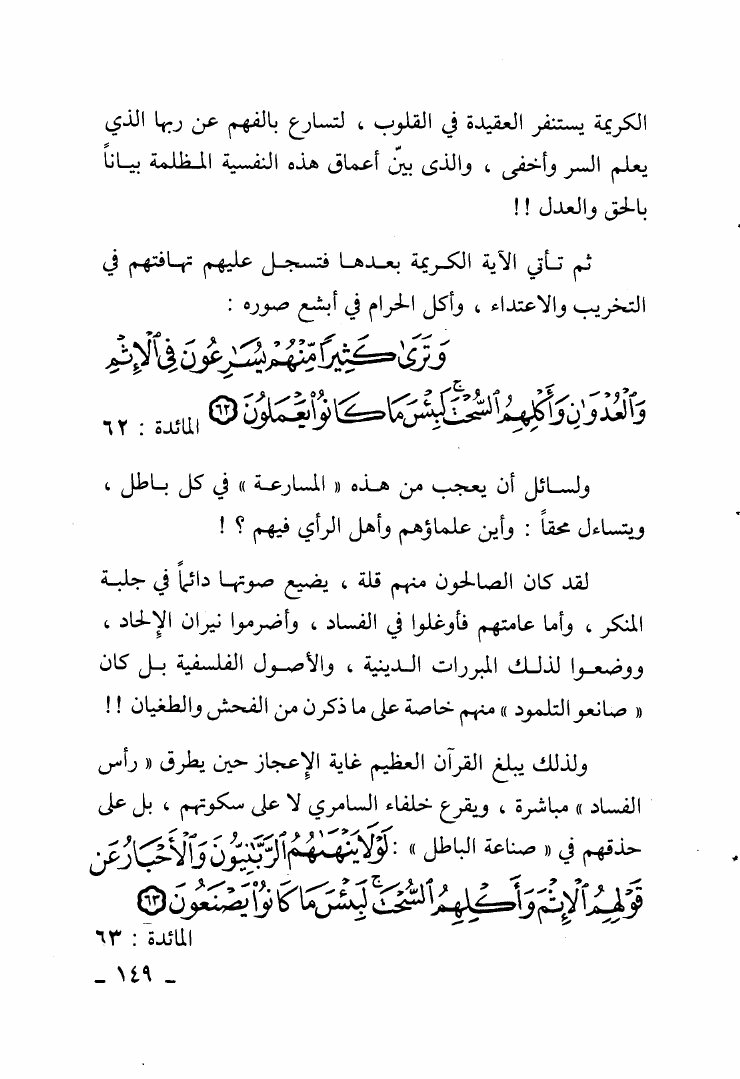 الكريمة يستنفر العقيدة في القلوب ، لتسارع بالفهم عن ربها الذي
يعلم السر وأخفى ، والذى بيّن أعماق هذه النفسية المظلمة بياناً
بالحق والعدل !!
ثم تأتي الآية الكريمة بعدها فتسجل عليهم تهافتهم في
التخريب والاعتداء ، وأكل الحرام في أبشع صوره :
وَتَرَىٰ كَثِيرًا مِّنْهُمْ يُسَٰرِعُونَ فِى ٱلْإِثْمِ
وَٱلْعُدْوَٰنِ وَأَكْلِهِمُ ٱلسُّحْتَ ۚ لَبِئْسَ مَا كَانُوا۟ يَعْمَلُونَ ٦٢ المائدة : ٦٢
ولسائل أن يعجب من هذه « المسارعة » في كل باطل ،
ويتساءل محقاً : وأين علماؤهم وأهل الرأي فيهم ؟ !
لقد كان الصالحون منهم قلة ، يضيع صوتها دائماً في جلبة
المنكر ، وأما عامتهم فأوغلوا في الفساد ، وأضرموا نيران الإلحاد ،
ووضعوا لذلك المبررات الدينية ، والأصول الفلسفية بل كان
« صانعو التلمود » منهم خاصة على ما ذكرن من الفحش والطغيان !!
ولذلك يبلغ القرآن العظيم غاية الإعجاز حين يطرق « رأس
الفساد » مباشرة ، ويقرع خلفاء السامري لا على سكوتهم ، بل على
حذقهم في « صناعة الباطل » : لَوْلَا يَنْهَىٰهُمُ ٱلرَّبَّٰنِيُّونَ وَٱلْأَحْبَارُ عَن
قَوْلِهِمُ ٱلْإِثْمَ وَأَكْلِهِمُ ٱلسُّحْتَ ۚ لَبِئْسَ مَا كَانُوا۟ يَصْنَعُونَ ٦٣
المائدة : ٦٣
ـ ١٤٩ ـ